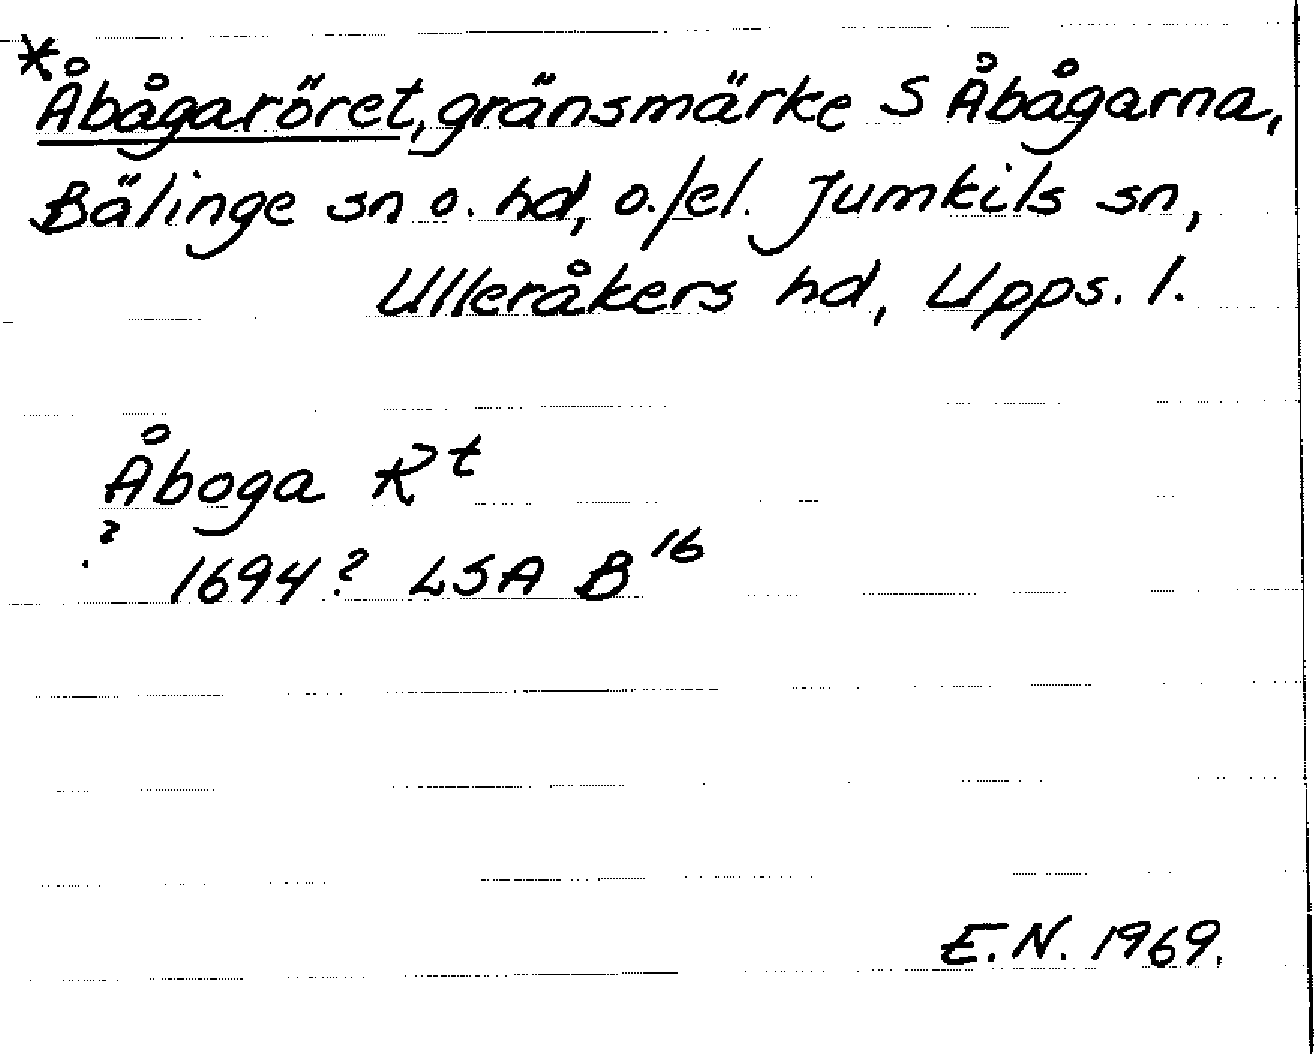 *Åbågaröret, gränsmärke S Åbågarna,
Bälinge sn o. hd, o./el. Jumkils sn,
Ulleråkers hd, Upps. l.
Åboga Rt
? 1694? LSA B16
E.N. 1969.